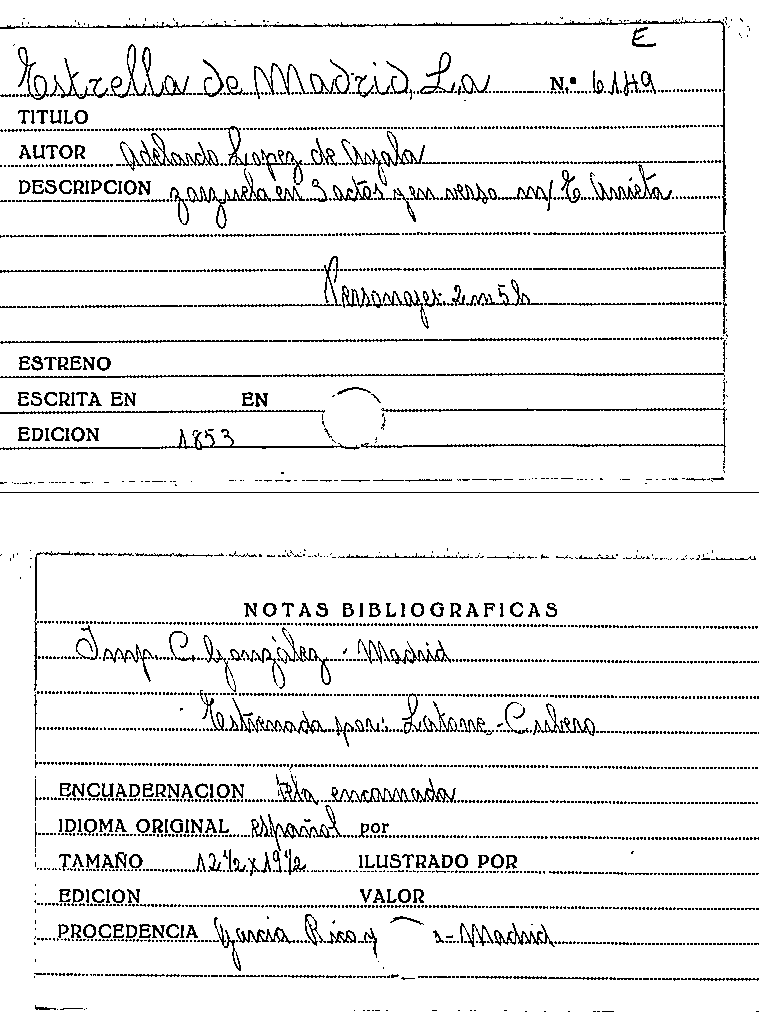 E
Estrella de Madrid, La N.º 6149
TITULO
AUTOR Adelardo Lopez de Ayala
DESCRIPCION zarzuela en 3 actos y en verso m/ E Arrieta
Personajes: 2 m 5 h
ESTRENO
ESCRITA EN EN
EDICION 1853
NOTAS BIBLIOGRAFICAS
Imp C. González - Madrid
Estrenada por: Latorre - Cubero
ENCUADERNACION tela encarnada
IDIOMA ORIGINAL español por
TAMAÑO 12½ x 19½ ILUSTRADO POR
EDICION VALOR
PROCEDENCIA Garcia Rico y - Madrid